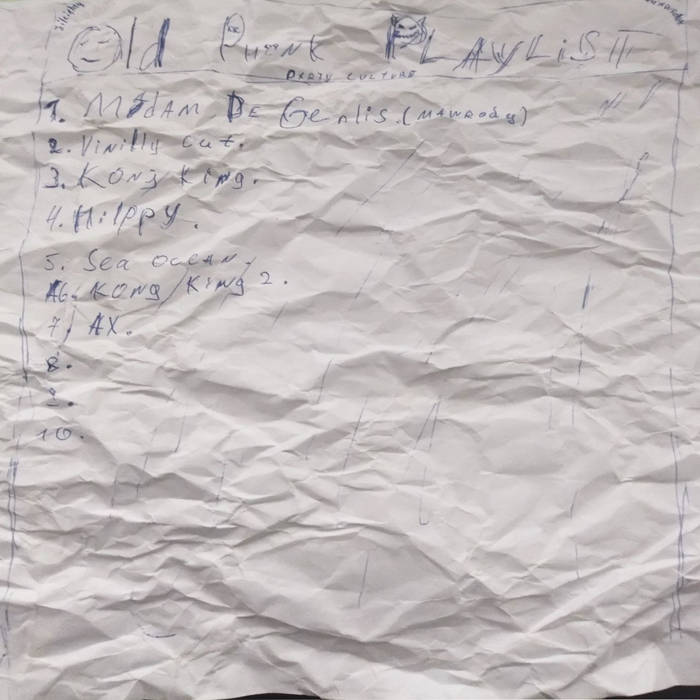 Old Phonk PLAYLiST
DIRTY CULTURE
1. MADAM DE Genlis. (MAWRODY)
2. Vinilly cut.
3. Kong King.
4. Hilppy.
5. Sea ocean.
6. Kong King 2.
7. AX.
8.
9.
10.